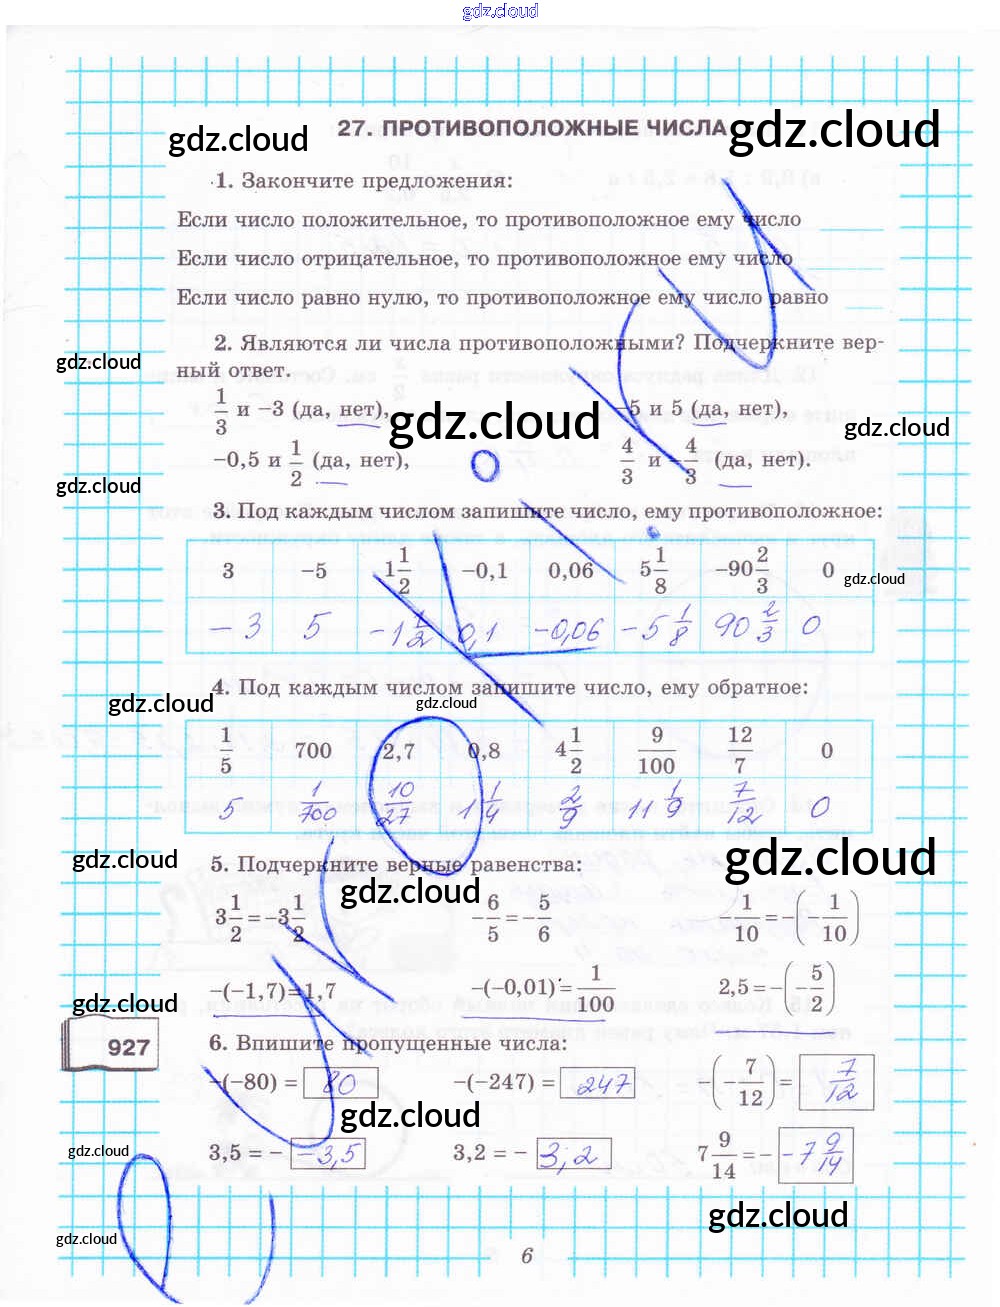 gdz.cloud
27. ПРОТИВОПОЛОЖНЫЕ ЧИСЛА
gdz.cloud gdz.cloud
1. Закончите предложения:
Если число положительное, то противоположное ему число
Если число отрицательное, то противоположное ему число
Если число равно нулю, то противоположное ему число равно
2. Являются ли числа противоположными? Подчеркните вер-
gdz.cloud
ный ответ.
1/3 и −3 (да, нет), −5 и 5 (да, нет),
gdz.cloud gdz.cloud
−0,5 и 1/2 (да, нет), 4/3 и −4/3 (да, нет).
gdz.cloud
3. Под каждым числом запишите число, ему противоположное:
3 −5 1 1/2 −0,1 0,06 5 1/8 −90 2/3 0
gdz.cloud
−3 5 −1 1/2 0,1 −0,06 −5 1/8 90 2/3 0
4. Под каждым числом запишите число, ему обратное:
gdz.cloud gdz.cloud
1/5 700 2,7 0,8 4 1/2 9/100 12/7 0
5 1/700 10/27 1 1/4 2/9 11 1/9 7/12 0
gdz.cloud gdz.cloud
5. Подчеркните верные равенства:
gdz.cloud
3 1/2 = −3 1/2 −6/5 = −5/6 1/10 = −(−1/10)
−(−1,7) = 1,7 −(−0,01) = 1/100 2,5 = −(−5/2)
gdz.cloud
927
6. Впишите пропущенные числа:
−(−80) = 80 −(−247) = 247 (−7/12) = 7/12
gdz.cloud
3,5 = − −3,5 3,2 = − 3,2 7 9/14 = − −7 9/14
gdz.cloud
gdz.cloud
gdz.cloud
6